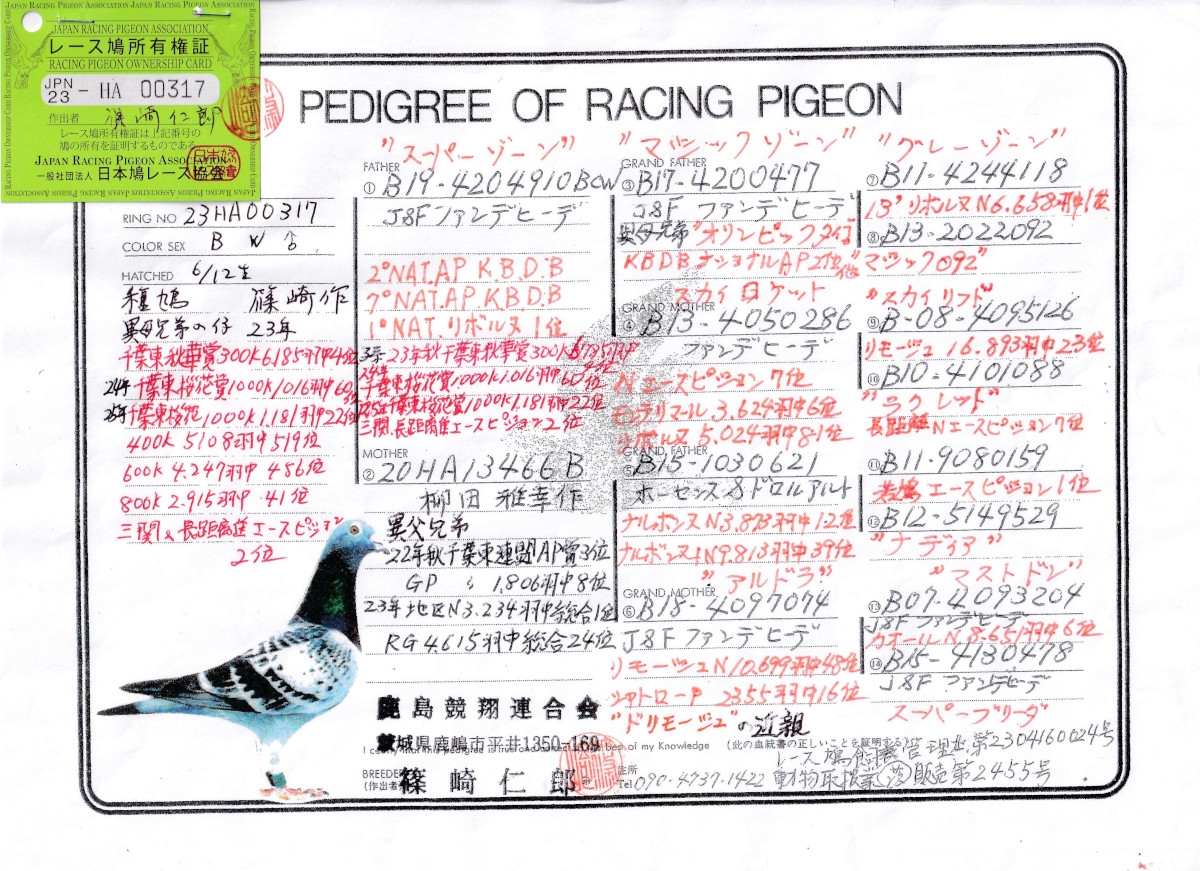 JAPAN RACING PIGEON ASSOCIATION
レース鳩所有権証
RACING PIGEON OWNERSHIP CARD
JPN
23 - HA 00317
作出者 篠崎仁郎
レース鳩所有権証は上記番号の
鳩の所有を証明するものである
JAPAN RACING PIGEON ASSOCIATION
一般社団法人 日本鳩レース協会
PEDIGREE OF RACING PIGEON
RING NO 23HA00317
COLOR SEX B W ♂
HATCHED 6/12生
種鳩 篠崎作
異母兄弟の仔 23年
千葉東秋華賞300K6185羽中4位
24年千葉東桜花賞1000K1,016羽中60位
25年千葉東桜花1000K1.181羽中22位
400K 5108羽中519位
600K 4.247羽中456位
800K 2.915羽中41位
三関&長距離進エースピジョン
2位
"スーパーゾーン"
FATHER
① B19-4204910 BCW
J&Fファンデヒーデ
2°NAT.AP K.B.D.B
7°NAT.AP K.B.D.B
1°NAT.リボルヌ1位
23年秋千葉東秋華賞300K
千葉東桜花賞1000K1.016羽中60位
25年千葉東桜花賞1000K1.181羽中22位
三関,長距離進エースピジョン2位
MOTHER
② 20HA13466 B
柳田雅幸作
異父兄弟
22年秋千葉東連盟AP賞3位
GP 〃 1,806羽中8位
23年地区N3.234羽中総合1位
RG4615羽中総合24位
鹿島競翔連合会
茨城県鹿嶋市平井1350-169
BREEDER
(作出者) 篠崎仁郎
"マジックゾーン"
GRAND FATHER
③ B17-4200477
J&F ファンデヒーデ
異母兄弟"オリンピック
KBDBナショナルAP2位
スカイロケット
GRAND MOTHER
④ B13-4050286
ファンデヒーデ
Nエースピジョン7位
モンテリマール3.624羽中6位
リボルヌ5.024羽中81位
GRAND FATHER
⑤ B15-1030621
ホーセンス&ドロルアルト
ナルボンヌN3.873羽中12位
ナルボンヌIN9.813羽中39位
"アルドラ"
GRAND MOTHER
⑥ B18-4097074
J&Fファンデヒーデ
リモージュN10.699羽中48位
シャトロープ 2355羽中16位
"ドリモージュ"の近親
"グレーゾーン"
⑦ B11-4244118
13'リボルヌN6.658羽中1位
⑧ B13-2022092
マジック092"
"スカイリフト"
⑨ B-08-4095126
リモージュ16.893羽中23位
⑩ B10-4101088
"ラクレッド"
長距離Nエースピジョン7位
⑪ B11-9080159
若鳩エースピジョン1位
⑫ B12-5149529
"ナディア"
"マストドン"
⑬ B07-4093204
J&Fファンデヒーデ
カオールN8.651羽中6位
⑭ B15-4130478
J&F ファンデヒーデ
スーパーブリーダ
of my Knowledge (此の血統書の正しいことを証明する)
レース鳩 管理士第2304160024号
住所
Tel 090-4737-1422 動物取扱業 販売第2455号